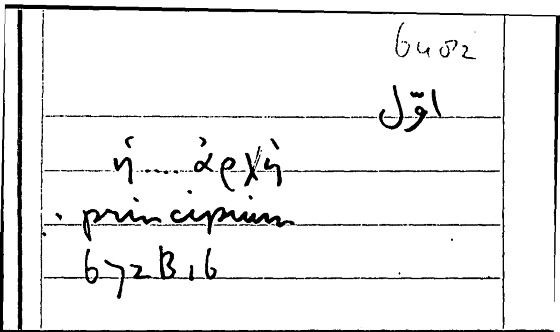 اوّل
ἡ .... ἀρχή
principium
672B,6